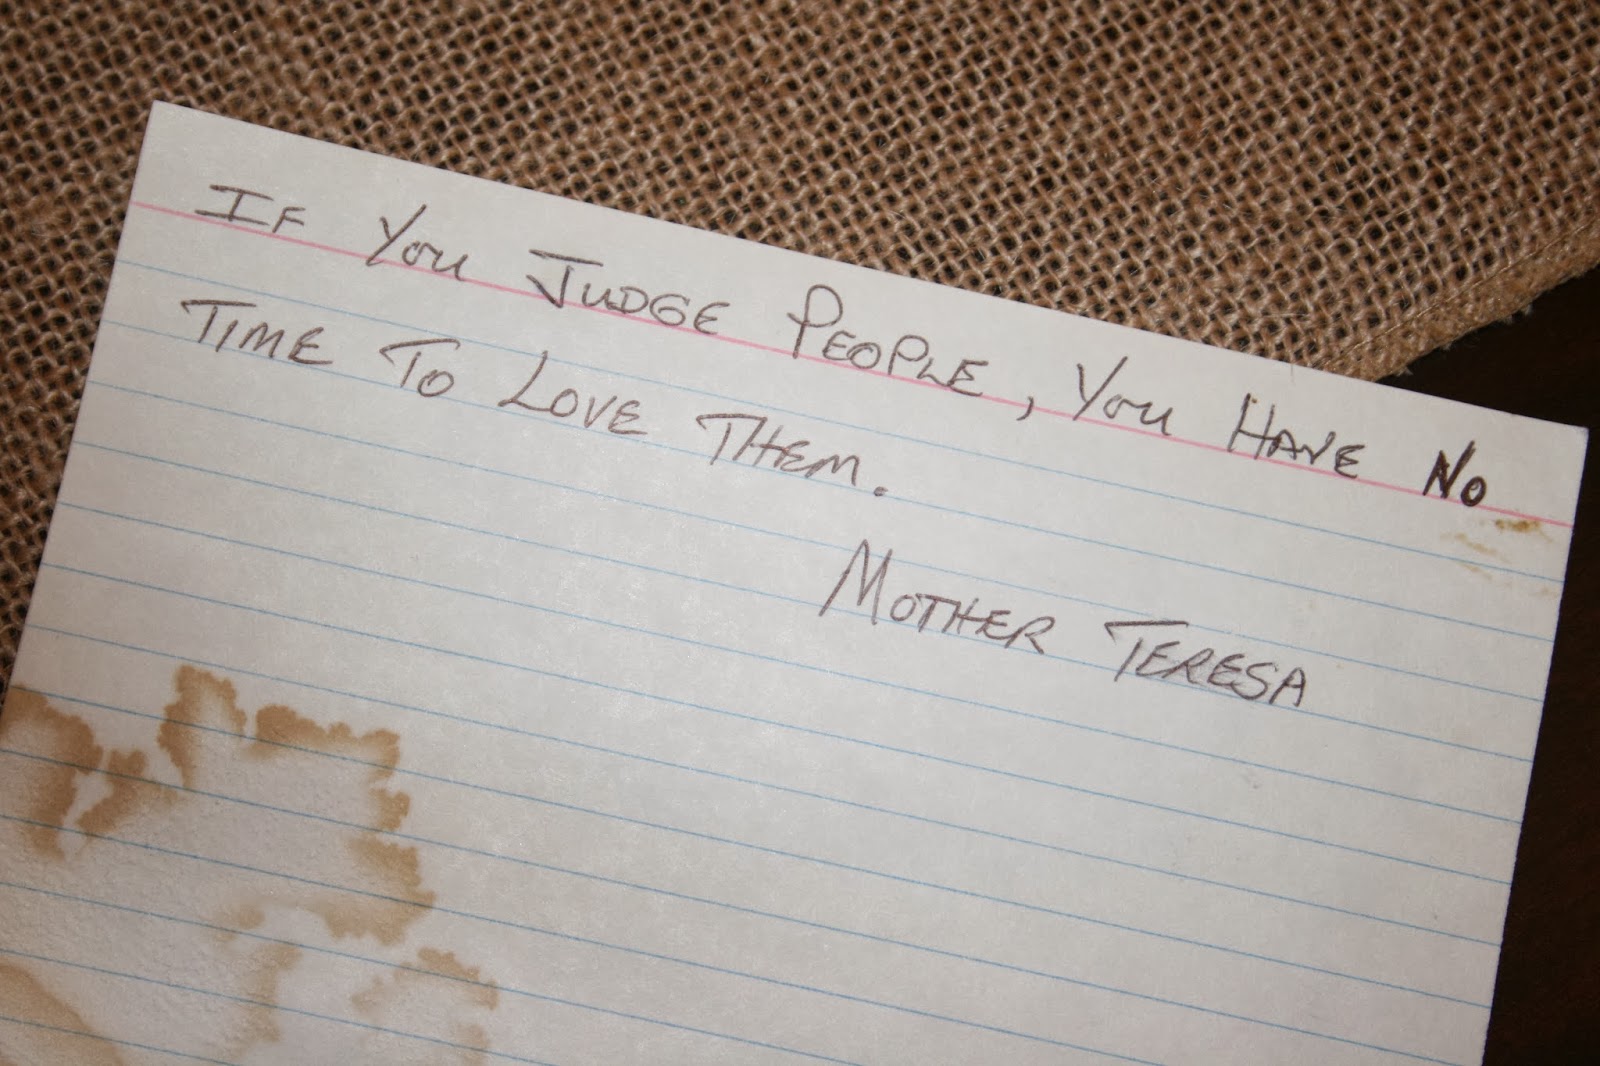 If You Judge People, You Have No
Time To Love Them.
Mother Teresa